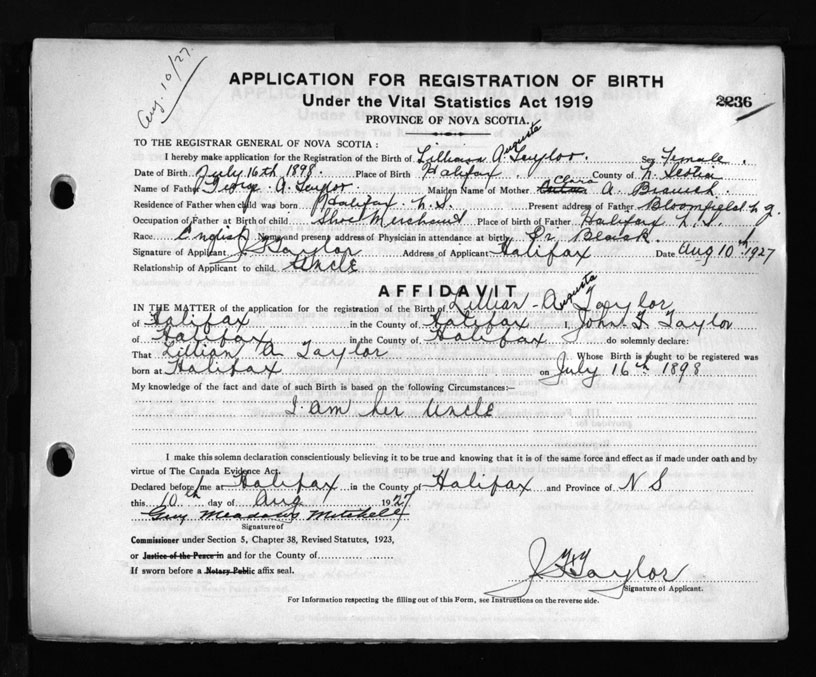 Aug. 10/27.
APPLICATION FOR REGISTRATION OF BIRTH
Under the Vital Statistics Act 1919
2236
PROVINCE OF NOVA SCOTIA.
TO THE REGISTRAR GENERAL OF NOVA SCOTIA :
Augusta
I hereby make application for the Registration of the Birth of Lillian A. Taylor. Sex Female.
Date of Birth July 16th 1898. Place of Birth Halifax County of N. Scotia
Name of Father A. Taylor. Maiden Name of Mother Clara A.
Residence of Father when child was born Halifax N.S. Present address of Father Bloomfield
Occupation of Father at Birth of child. Shoe Merchant Place of birth of Father Halifax N.S.
Race English Name and present address of Physician in attendance at birth Dr. Black.
Signature of Applicant J Taylor Address of Applicant Halifax Date Aug 10th 1927
Relationship of Applicant to child. Uncle
AFFIDAVIT
Augusta
IN THE MATTER of the application for the registration of the Birth of Lillian A Taylor
of Halifax in the County of Halifax I, John F Taylor
of Halifax in the County of Halifax do solemnly declare:
That Lillian A Taylor Whose Birth is sought to be registered was
born at Halifax on July 16th 1898
My knowledge of the fact and date of such Birth is based on the following Circumstances:—
I am her Uncle
I make this solemn declaration conscientiously believing it to be true and knowing that it is of the same force and effect as if made under oath and by
virtue of The Canada Evidence Act.
Declared before me at Halifax in the County of Halifax and Province of N S
this 10th day of Aug 1927
Guy Meadows Mitchell
Signature of
Commissioner under Section 5, Chapter 38, Revised Statutes, 1923,
or Justice of the Peace in and for the County of
If sworn before a Notary Public affix seal.
Taylor
Signature of Applicant.
For Information respecting the filling out of this Form, see Instructions on the reverse side.